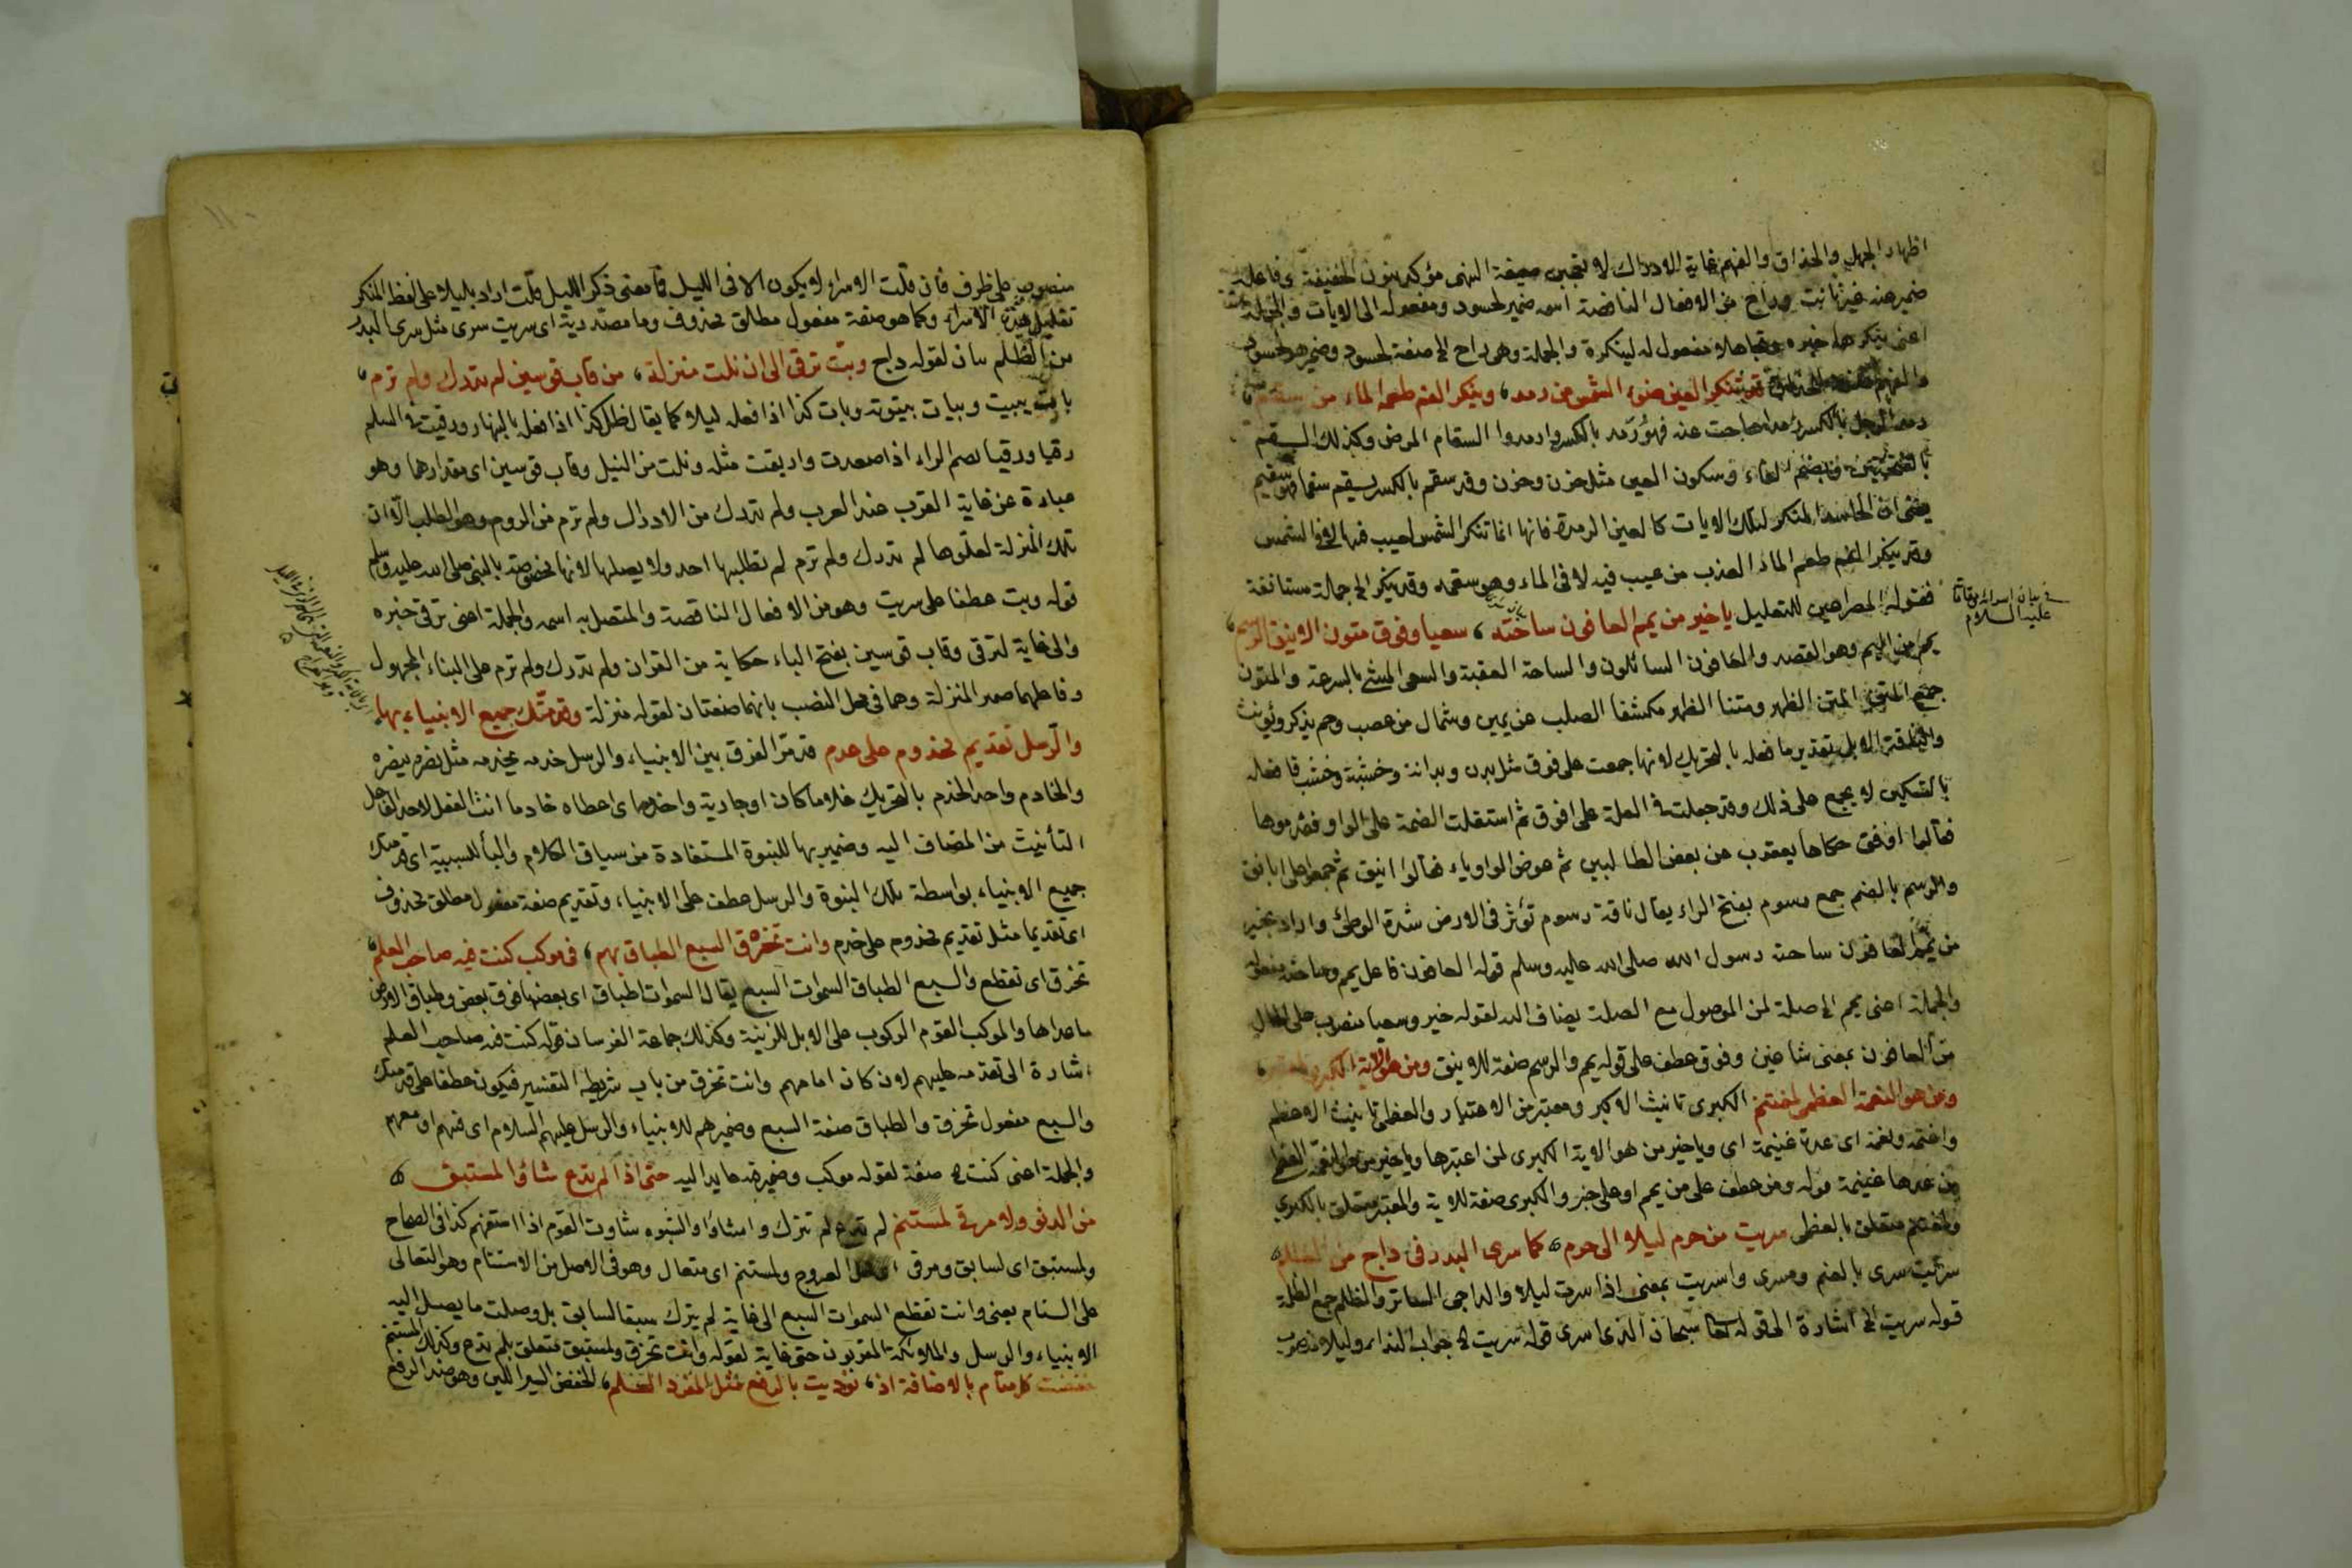 اظهار الجهل والحذاق والفهم غاية الادراك لا تعجبن صيغة النهى مؤكد بنون الخفيفة وفاعله
ضمير عنه غير ثابت وراح من الافعال الناقصة اسمه ضمير لحسود ومفعوله الى الايات والجملة
اعنى ينكرها خبره وتجاهلا مفعول له لينكرة والجملة وهى راح الخ صفة لحسود وضمير هو لحسود
قد تنكر العين ضوء الشمس من رمد، وينكر الفم طعم الماء من سقم
رمد الرجل بالكسر يرمد هاجت عنه فهو رمد بالكسر وارمد والسقام المرض وكذلك السقم
بالفتحتين وبضم الفاء وسكون العين مثل حزن وحزن وقد سقم بالكسر يسقم سقما فهو سقيم
يعنى ان الحاسد المنكر لتلك الايات كالعين الرمدة فانها انما تنكر الشمس لعيب فيها لا فى الشمس
وقد ينكر الفم طعم الماء العذب من عيب فيه لا فى الماء وهو سقمه وقد ينكر الخ جملة مستانفة
فقوله المصراعين للتعليل يا خير من يمم العافون ساحته، سعيا وفوق متون الاينق الرسم
يمم من اليم وهو القصد والعافون السائلون والساحة العقبة والسعى المشى بالسرعة والمتون
جمع المتن المتن الظهر ومتنا الظهر مكتنفا الصلب عن يمين وشمال من عصب ولحم يذكر ويؤنث
والناقة الابل تقدير ما فعله بالتحريك لانها جمعت على فوق مثل بدن وبدانة وخشبة وخشب فا فعله
بالتسكين لا يجمع على ذلك وقد جعلت فى العلة على افوق ثم استقلت الضمة على الواو فقدموها
فقالوا اوفق حكاها يعقرب عن بعض الطالبين ثم عوض الواو ياء فقالوا انيق ثم جمعوا على ايانق
والرسم بالضم جمع رسوم بفتح الراء يقال ناقة رسوم تؤثر فى الارض شدة الوطئ واراد بخير
من يمم العافون ساحته رسول الله صلى الله عليه وسلم قوله العافون فاعل يمم وساحته مفعوله
والجملة اعنى يمم الخ صلة لمن الموصول مع الصلة يضاف اليه لقوله خير وسعيا منصوب على الحال
من العافون بمعنى ساعين وفوق عطف على قوله يمم والرسم صفة للاينق ومن هو الاية الكبرى لمعتبر،
ومن هو النعمة العظمى لمغتنم الكبرى تانيث الاكبر ومعتبر من الاعتبار والعظمى تانيث الاعظم
واغتمه ونعمة اى عدة غنيمة اى ويا خير من هو الاية الكبرى لمن اعتبرها ويا خير من هو النعمة العظمى
من عدها غنيمة قوله ومن عطف على من يمم او على خير والكبرى صفة للاية والمعتبر متعلق بالكبرى
ولمغتنم متعلق بالعظمى سريت من حرم ليلا الى حرم، كما سرى البدر فى داج من الظلم
سريت سرى بالضم ومسرى واسريت بمعنى اذا سرت ليلا والداجى الساتر والظلم جمع الظلمة
قوله سريت الخ اشارة الى قوله تعا سبحان الذى اسرى قوله سريت الخ جواب النداء وليلا منصوب
فى بيان اسرائه
عليه السلام
منصوب على ظرف فان قلت الاسراء لا يكون الا فى الليل فما معنى ذكر الليل قلت اراد بليلا على لفظ المنكر
تقليل مدة الاسراء وكما هو صفة مفعول مطلق محذوف وما مصدرية اى سريت سرى مثل سرى البدر
من الظلم بيان لقوله داج وبت ترقى الى ان نلت منزلة، من قاب قوسين لم تدرك ولم ترم،
بات يبيت وبيات بيتوتة وبات كذا اذا فعله ليلا كما يقال ظل كذا اذا فعله بالنهار ورقيت فى السلم
رقيا ورقيا بضم الراء اذا صعدت وارتقيت مثله ونلت من النيل وقاب قوسين اى مقدارهما وهو
عبارة عن غاية القرب عند العرب ولم تدرك من الادراك ولم ترم من الروم وهو الطلب الا ان
تلك المنزلة لعلوها لم تدرك ولم ترم لم يطلبها احد ولا يصلها لانها مخصوصة بالنبى صلى الله عليه وسلم
قوله وبت عطف على سريت وهو من الافعال الناقصة والمتصل به اسمه والجملة اعنى ترقى خبره
والى غاية لترقى وقاب قوسين بفتح الباء حكاية من القران ولم تدرك ولم ترم على البناء المجهول
وفاعلهما ضمير المنزلة وهما فى محل النصب بانهما صفتان لقوله منزلة وقدمتك جميع الانبياء بها،
والرسل تقديم مخدوم على خدم قد مر الفرق بين الانبياء والرسل خدمه يخدمه مثل نصره ينصره
والخادم واحد الخدم بالتحريك غلاما كان او جارية واخدمه اى اعطاه خادما انث الفعل لاحد الفاعل
التأنيث من المضاف اليه وضمير بها للنبوة المستفادة من سياق الكلام والبأ للسببية اى قدمتك
جميع الانبياء بواسطة تلك النبوة والرسل عطف على الانبياء، وتقديم صفة مفعول مطلق محذوف
اى تقديما مثل تقديم مخدوم على خدم وانت تخترق السبع الطباق بهم، فى موكب كنت فيه صاحب العلم،
تخرق اى تقطع والسبع الطباق السموات السبع يقال السموات طباق اى بعضها فوق بعض وطباق الارض
ما عداها والموكب القوم الركوب على الابل للزينة وكذلك جماعة الفرسان قوله كنت فيه صاحب العلم
اشارة الى تقدمه عليهم لان كان امامهم وانت تخرق من باب شريطة التفسير فيكون عطفا على قدمتك
والسبع مفعول تخرق والطباق صفة السبع وضمير هم للانبياء والرسل عليهم السلام اى فيهم او معهم
والجملة اعنى كنت الخ صفة لقوله موكب وضمير فيه عايد اليه حتى اذا لم تدع شاؤا لمستبق
من الدنو ولا مرقى لمستنم لم تدع لم تترك وامشاؤا والشبوه شاوت القوم اذا استقهم كذا فى الصحاح
ولمستبق اى لسابق ومرقى اى محل العروج ولمستنم اى متعال وهو فى الاصل من الاستنام وهو التعالى
على السنام يعنى وانت تقطع السموات السبع الى غاية لم يترك سبقا لسابق بل وصلت ما يصل اليه
الانبياء والرسل والملائكة المقربون حتى غاية لقوله وانت تخرق ولمستبق متعلق بلم تدع وكذلك لمستنم
خفضت كل مقام بالاضافة اذ، نوديت بالرفع مثل المفرد العلم، الخفض السير اللين وهو ضد الرفع